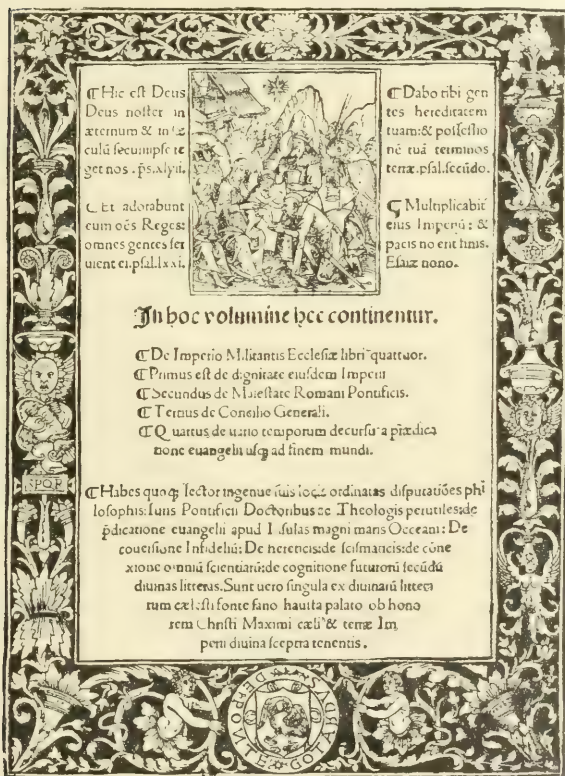 ¶Hic est Deus
Deus noster in
æternum & in sæ
culū secū ipse re
get nos. ps.xlvii.
¶Et adorabunt
eum oēs Reges:
omnes gentes ser
uient ei.psal.lxxi.
¶Dabo tibi gen
tes hereditatem
tuam: & possessio
nē tuā terminos
terræ.psal.secūdo.
¶Multiplicabit͛
eius Imperiū: &
pacis no erit finis.
Esaiæ nono.
In hoc volumine hec continentur.
¶De Imperio Militantis Ecclesiæ libri quattuor.
¶Primus est de dignitate eiusdem Imperii
¶Secundus de Maiestate Romani Pontificis.
¶Tertius de Concilio Generali.
¶Quartus de uario temporum decursu a prædica
tione euangelii usq; ad finem mundi.
¶Habes quoq; lector ingenue suis locis ordinatas disputatiōes phi
losophis: Iuris Pontificii Doctoribus ac Theologis perutiles: de
p̄dicatione euangelii apud Insulas magni maris Occeani: De
conuersione Infideliū: De hereticis: de scismaticis: de cōne
xione omniū scientiarū: de cognitione futurorū secūdū
diuinas litteras. Sunt uero singula ex diuinarū littera
rum cælesti fonte sano hausta palato ob hono
rem Christi Maximi cæli & terræ Im
perii diuina sceptra tenentis.
SPQR